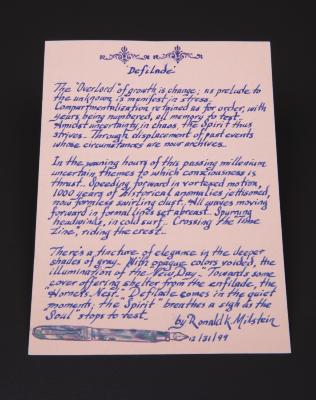 "Defilade"
The "Overlord" of growth is change; as prelude to
the unknown is manifest in stress.
Compartmentalization retained as for order, with
years being numbered, all memory to test.
Amidst uncertainty in chaos, the Spirit thus
strives. Through displacement of past events
whose circumstances are now archives.
In the waning hours of this passing millenium
uncertain themes to which consciousness is
thrust. Speeding forward in vortexed motion,
1000 years of historical anomalies jettisoned,
now formless swirling dust. All waves moving
forward in formal lines set abreast. Spurning
headwinds, in cold surf. Crossing the "Time
Line", riding the crest.
There's a tincture of elegance in the deeper
shades of gray. With opaque colors voided, the
illumination of the "New Day." Towards some
cover offering shelter from the enfilade, the
"Hornets Nest." Defilade comes in the quiet
moments, the "Spirit" breathes a sigh as the
"Soul" stops to rest.
by Ronald K Milstein
12/31/99